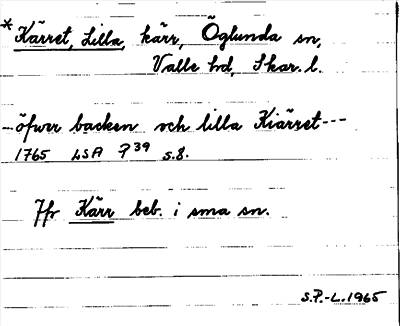 * Kärret, Lilla, kärr, Öglunda sn,
Valle hd, Skar. l.
- öfwer backen och lilla Kiärret ---
1765 LSA P39 s.8.
Jfr Kärr beb. i sma sn.
S.P.-L. 1965